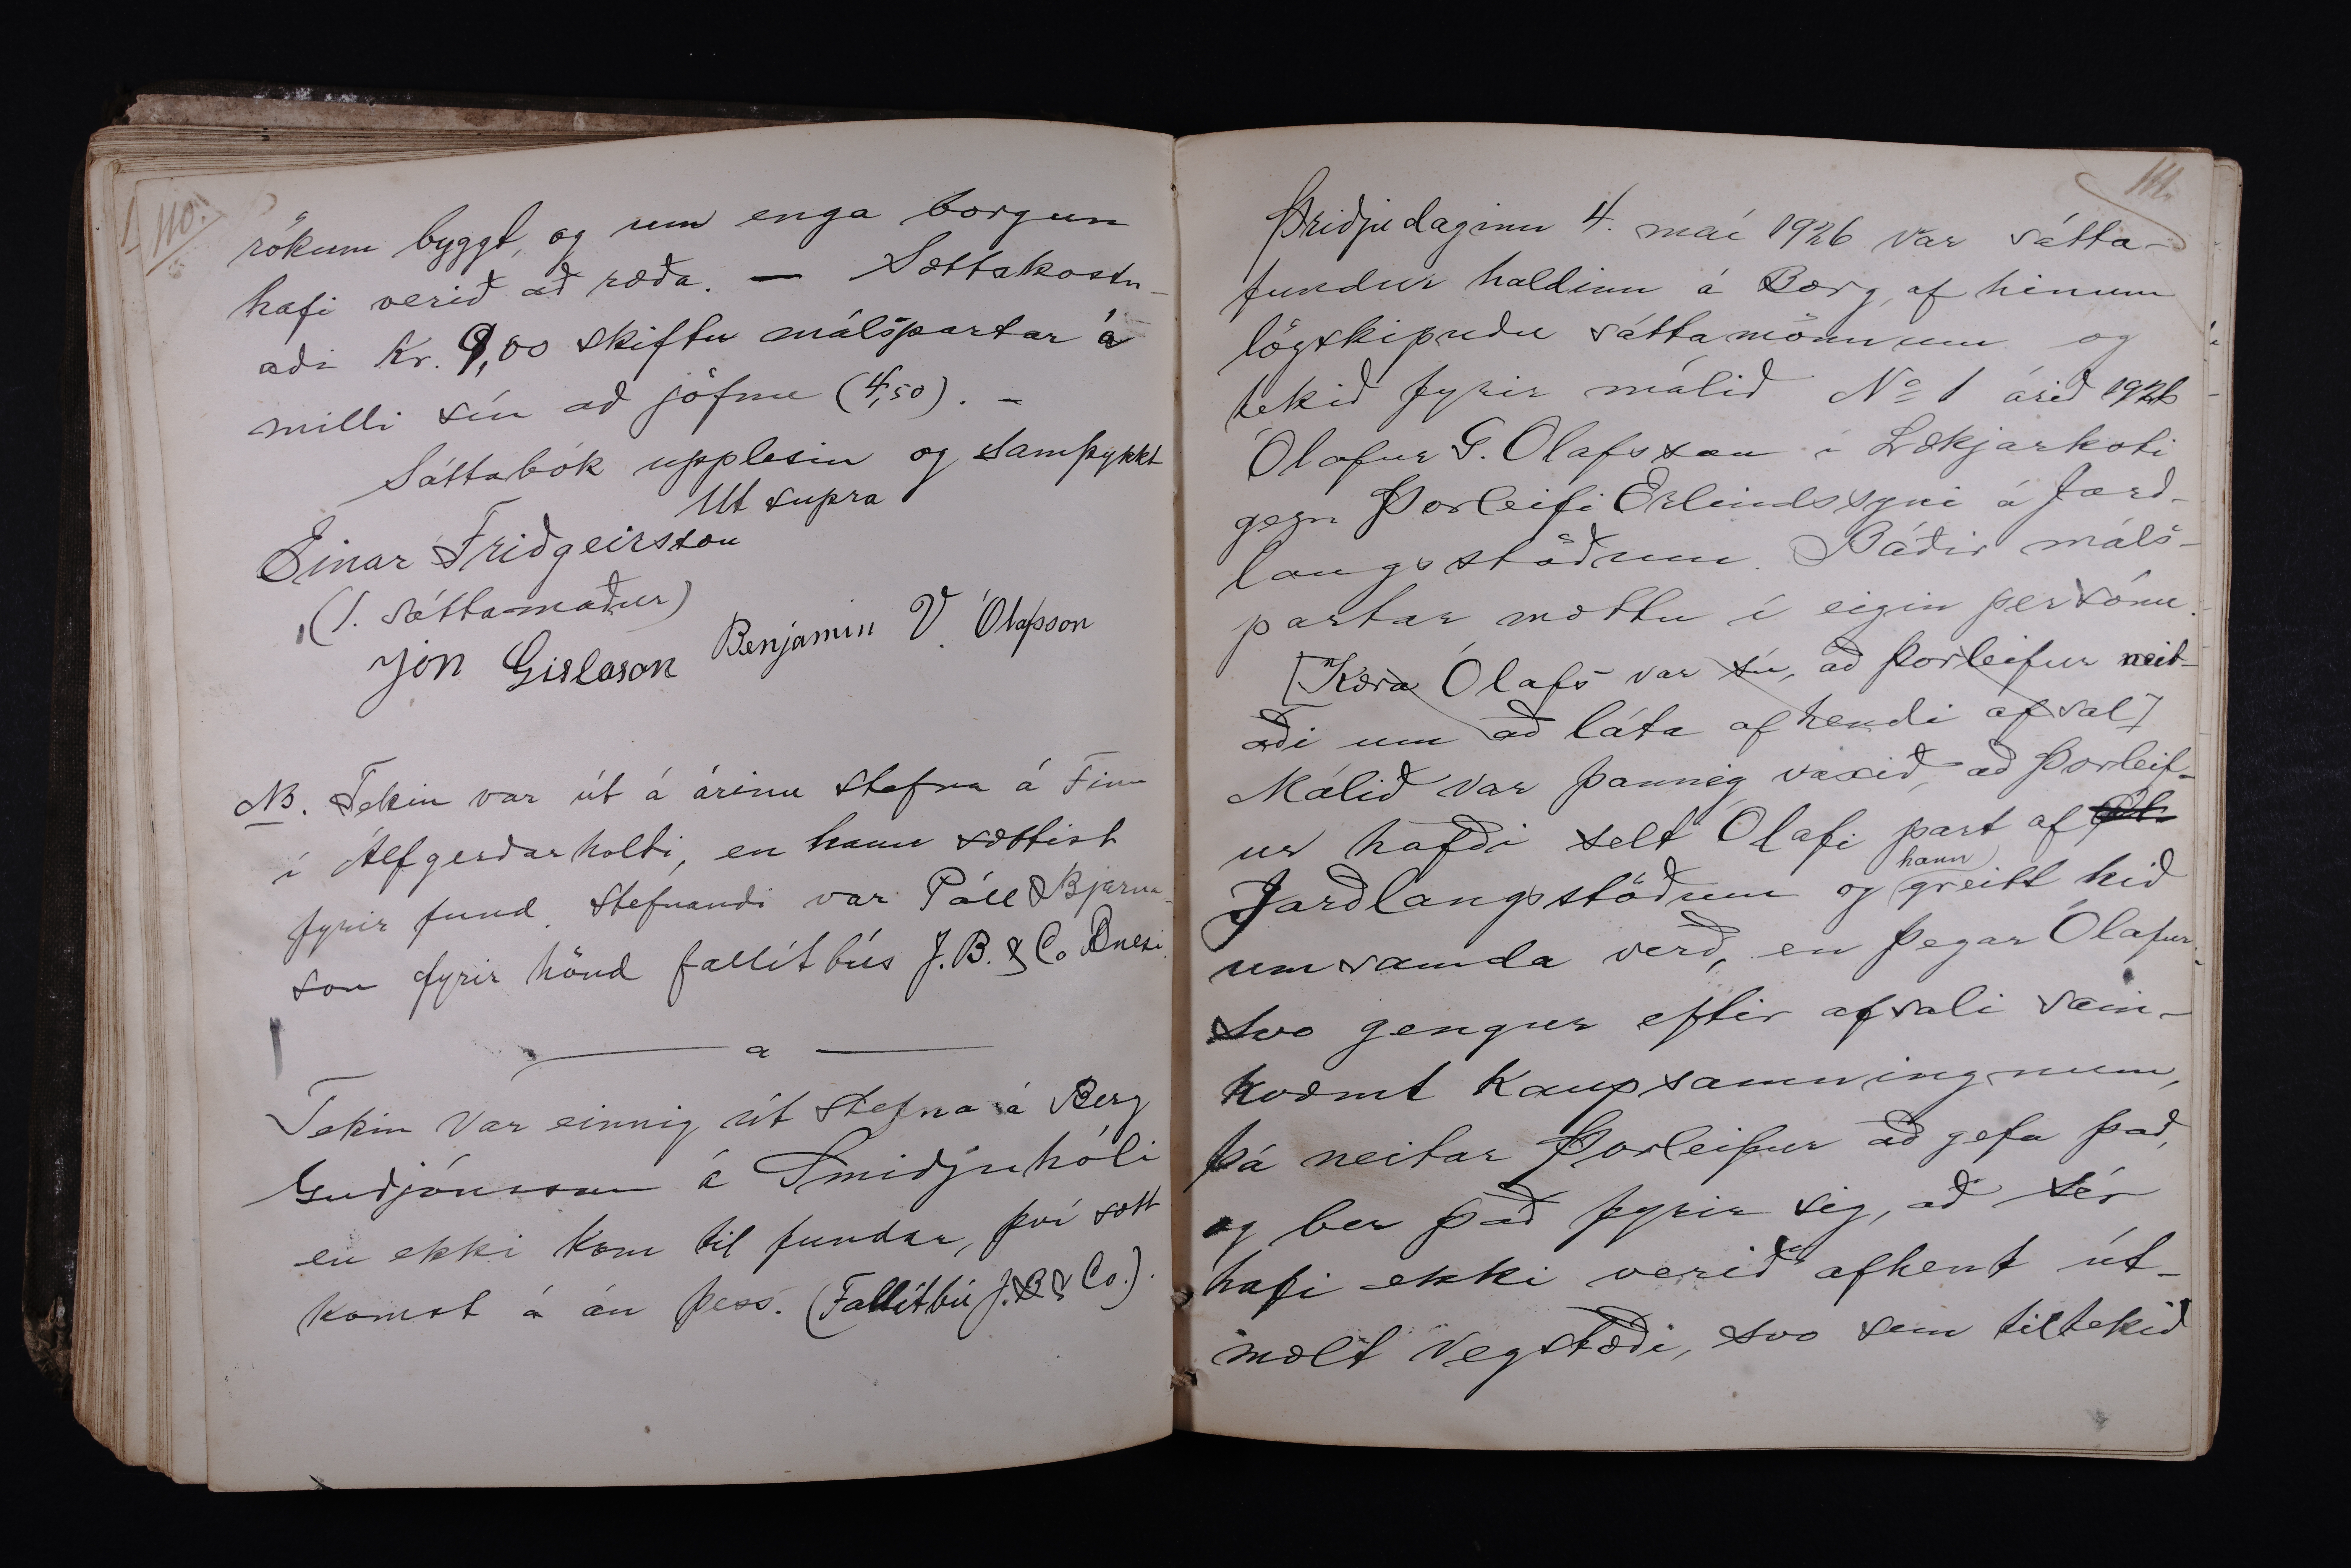 110.
rökum byggt, og um enga borgun
hafi verið að ræða. — Sættakostn-
aði kr. 9,00 skiftu málspartar á
milli sín að jöfnu (4,50). –
Sáttabók upplesin og samþykkt
Ut supra
Einar Friðgeirsson
(1. sáttamaður)
Jón Gíslason Benjamín V. Ólafsson
NB. Tekin var út á árinu stefna á Finn
í Álfgerðarholti, en hann sættist
fyrir fund. Stefnandi var Páll Bjarna-
son fyrir hönd fallítbús J.B. & Co Bnesi.
Tekin var einnig út stefna á Berg
Guðjónsson á Smiðjuhóli
en ekki kom til fundar, því sætt
komst á án þess. (Fallítbú J.B & Co.).
111.
Þriðjudaginn 4. maí 1926 var sátta-
fundur haldinn á Borg, af hinum
lögskipuðu sáttamönnum og
tekið fyrir málið No 1 árið 1926
Ólafur G. Ólafsson í Lækjarkoti
gegn Þorleifi Erlindssyni á Jarð-
langsstöðum. Báðir máls-
partar mættu í eigin persónu.
[Kæra Ólafs var sú, að Þorleifur neit-
aði um að láta af hendi afsal]
Málið var þannig vaxið, að Þorleif-
ur hafði selt Ólafi part af Ól.
Jarðlangsstöðum og hann greitt hið
umsamda verð, en þegar Ólafur
svo gengur eftir afsali sam-
kvæmt kaupsamningnum,
þá neitar Þorleifur að gefa það,
og ber það fyrir sig, að sér
hafi ekki verið afhent út-
mælt vegstæði, svo sem tiltekið